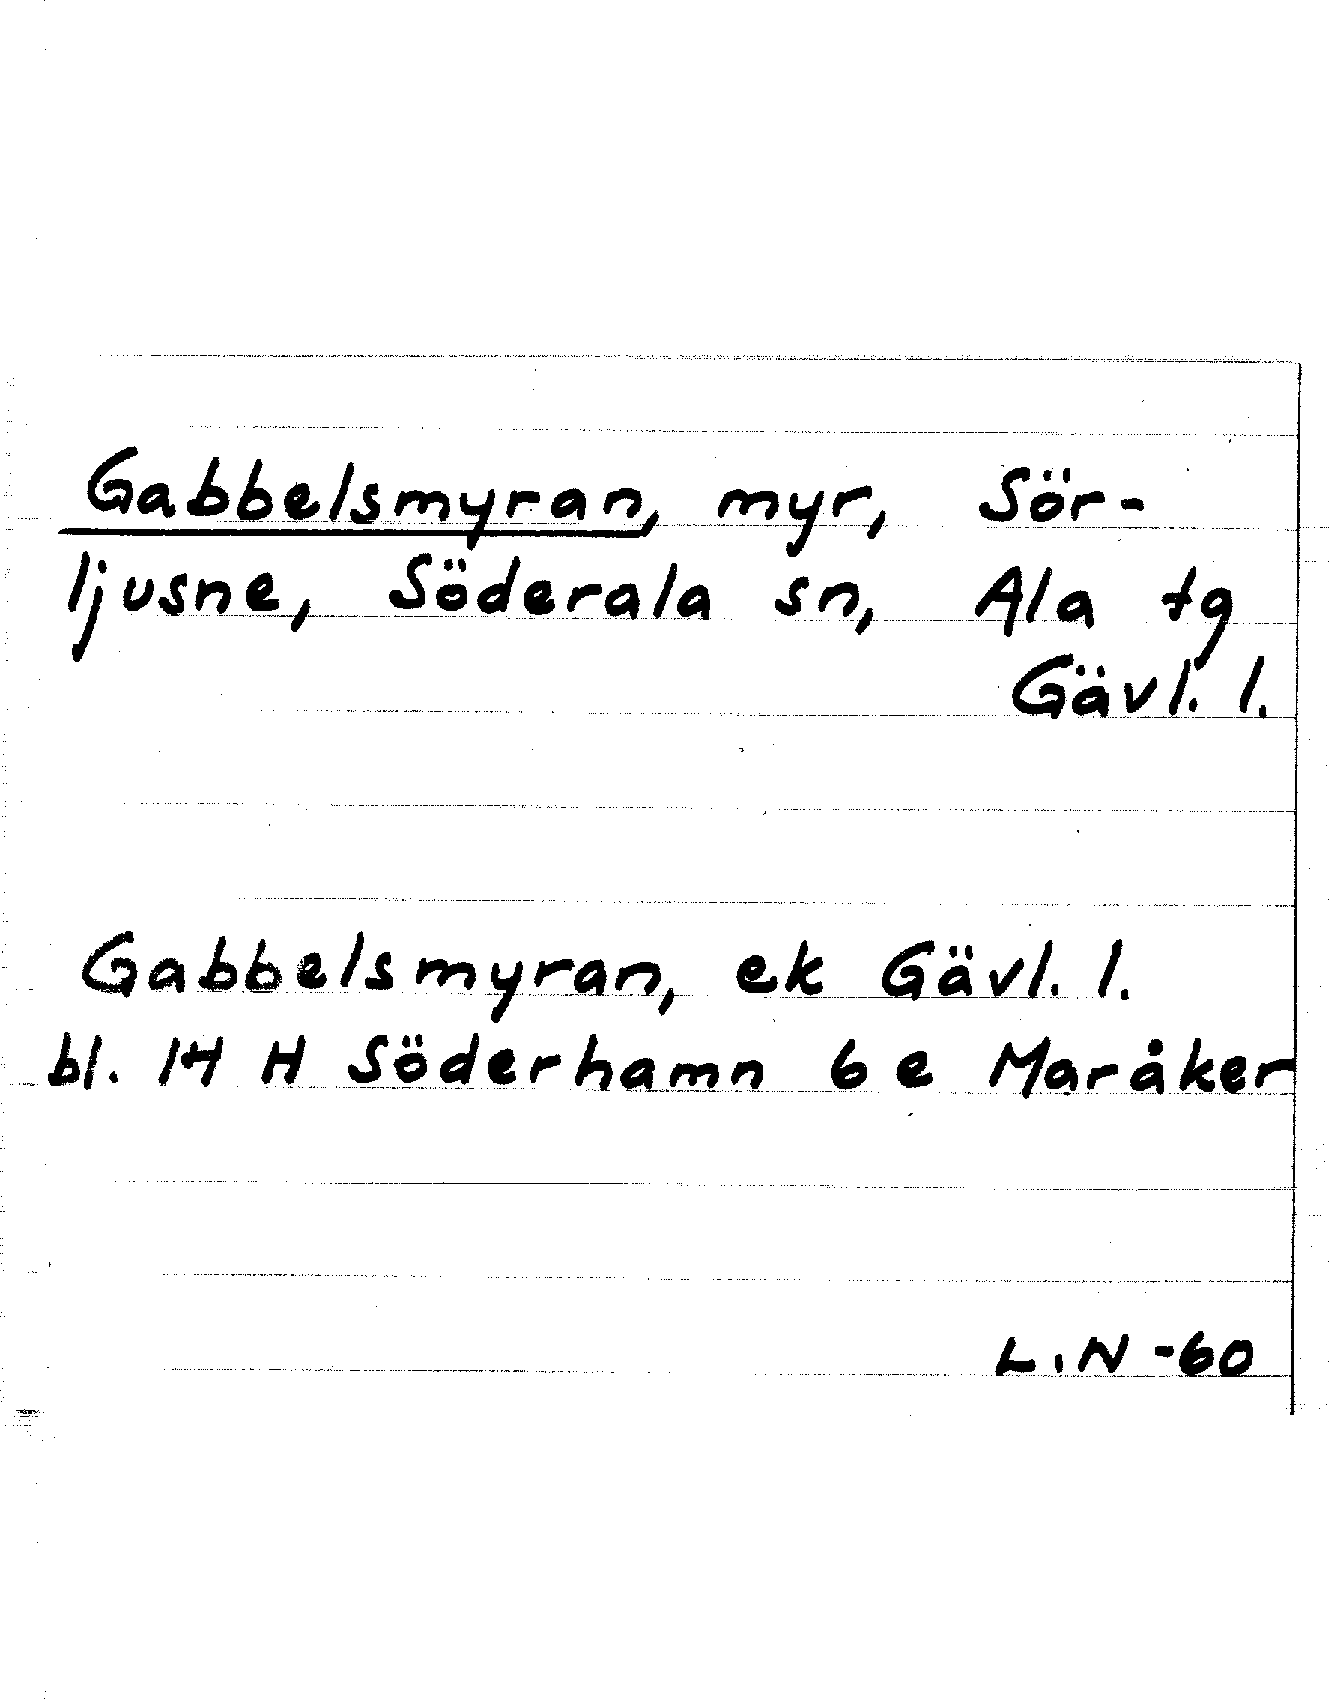 Gabbelsmyran, myr, Sör-
ljusne, Söderala sn, Ala tg
Gävl. l.
Gabbelsmyran, ek Gävl. l.
bl. 14 H Söderhamn 6 e Maråker
L.N -60